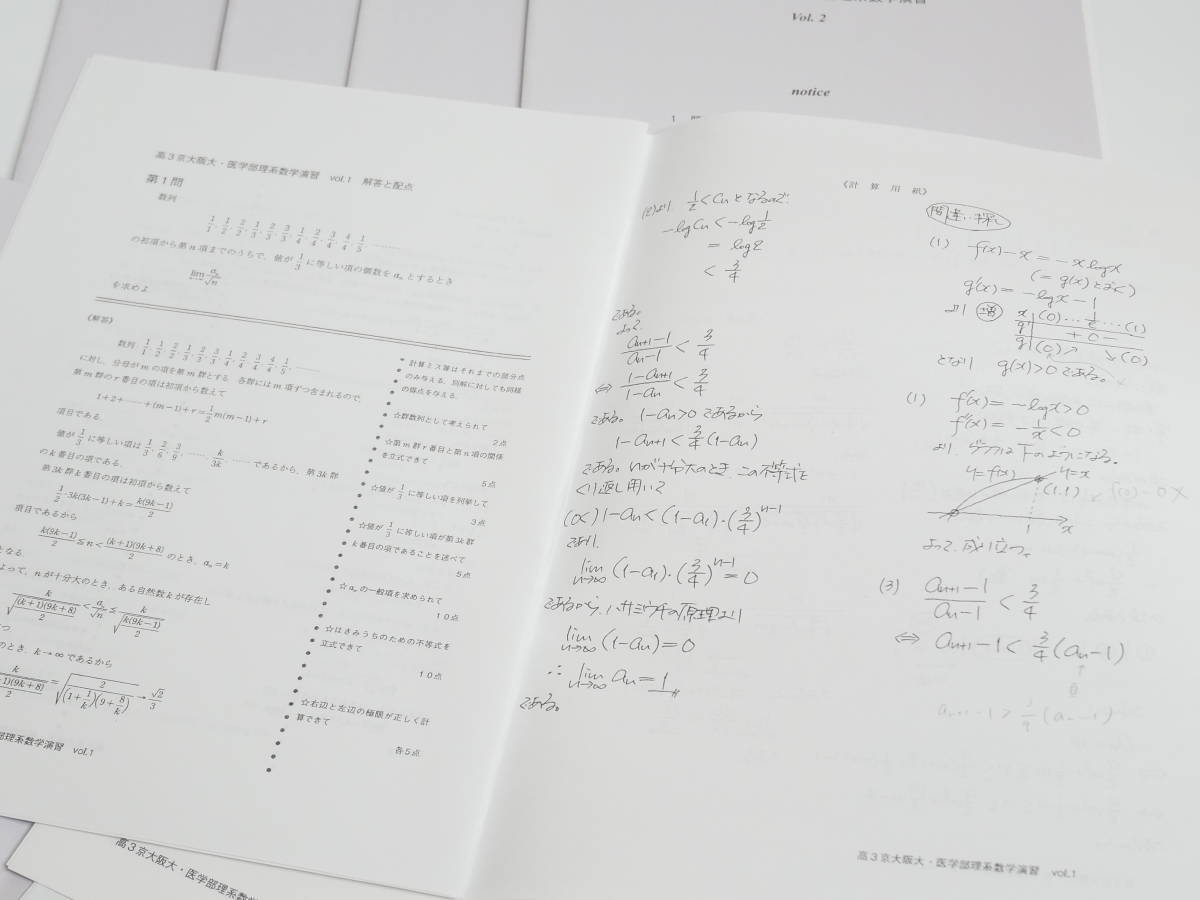 Vol. 2
notice
高3京大阪大・医学部理系数学演習 vol.1 解答と配点
第1問
数列
1/1, 1/2, 2/2, 1/3, 2/3, 3/3, 1/4, 2/4, 3/4, 4/4, 1/5, ………
の初項から第n項までのうちで、値が 1/3 に等しい項の個数を aₙ とするとき
lim aₙ/√n
を求めよ
《解答》
数列 1/1, 1/2, 2/2, 1/3, 2/3, 3/3, 1/4, 2/4, 3/4, 4/4, 1/5, ……
に対し、分母がmの項を第m群とする 各群にはm項ずつ含まれるので、
第m群のr番目の項は初項から数えて
1+2+……+(m−1)+r=1/2 m(m−1)+r
項目である.
値が 1/3 に等しい項は 1/3, 2/6, 3/9, ……, k/3k, …… であるから、第3k群
のk番目の項である.
第3k群k番目の項は初項から数えて
1/2・3k(3k−1)+k=k(9k−1)/2
項目であるから
k(9k−1)/2 ≦ n < (k+1)(9k+8)/2 のとき, aₙ=k
となる.
よって, nが十分大のとき, ある自然数kが存在し
k/√((k+1)(9k+8)/2) < aₙ/√n ≦ k/√(k(9k−1)/2)
のとき k→∞ であるから
k
1)(9k+8)/2 = √(2/((1+1/k)(9+8/k))) → √2/3
計算ミス等はそれまでの部分点
のみ与える. 別解に対しても同様
の採点を与える.
☆群数列として考えられて
2点
☆第m群r番目と第n項の関係
を立式できて
5点
☆値が 1/3 に等しい項を列挙して
3点
☆値が 1/3 に等しい項が第3k群
k番目の項であることを述べて
5点
☆aₙの一般項を求められて
10点
☆はさみうちのための不等式を
立式できて
10点
☆右辺と左辺の極限が正しく計
算できて
各5点
vol.1
高3京大阪大・医学部理系数学演習
(2)より 1/2<Cnとなるので
−logCn<−log1/2
=log2
<3/4
である。
よって
(an+1−1)/(an−1)<3/4
⇔ (1−an+1)/(1−an)<3/4
である。1−an>0であるから
1−an+1<3/4(1−an)
である。nが十分大のとき、この不等式を
くり返し用いて
(0<)1−an<(1−a1)・(3/4)^(n−1)
であり.
lim n→∞ (1−a1)・(3/4)^(n−1)=0
であるから、ハサミウチの原理より
lim n→∞ (1−an)=0
∴ lim n→∞ an=1
である。
《計算用紙》
間違い探し
(1) f(x)−x=−xlogx
(=g(x)とおく)
g'(x)=−logx−1
より 増
x (0) … 1/e … (1)
g' + 0 −
g (0) ↗ ↘ (0)
となり g(x)>0である。
(1) f'(x)=−logx>0
f''(x)=−1/x<0
より. グラフは下のようになる。
y=f(x) y=x
(1.1)
1 x
f(0)=0 ×
よって. 成り立つ。
(3) (an+1−1)/(an−1)<3/4
⇔ an+1−1<3/4(an−1)
↑
0
an+1−1>3/4(an−1)
高3京大阪大・医学部理系数学演習 vol.1